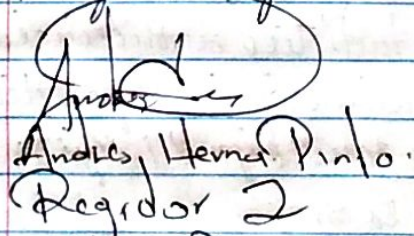 Andres
Andres Hernan Pinto.
Regidor 2